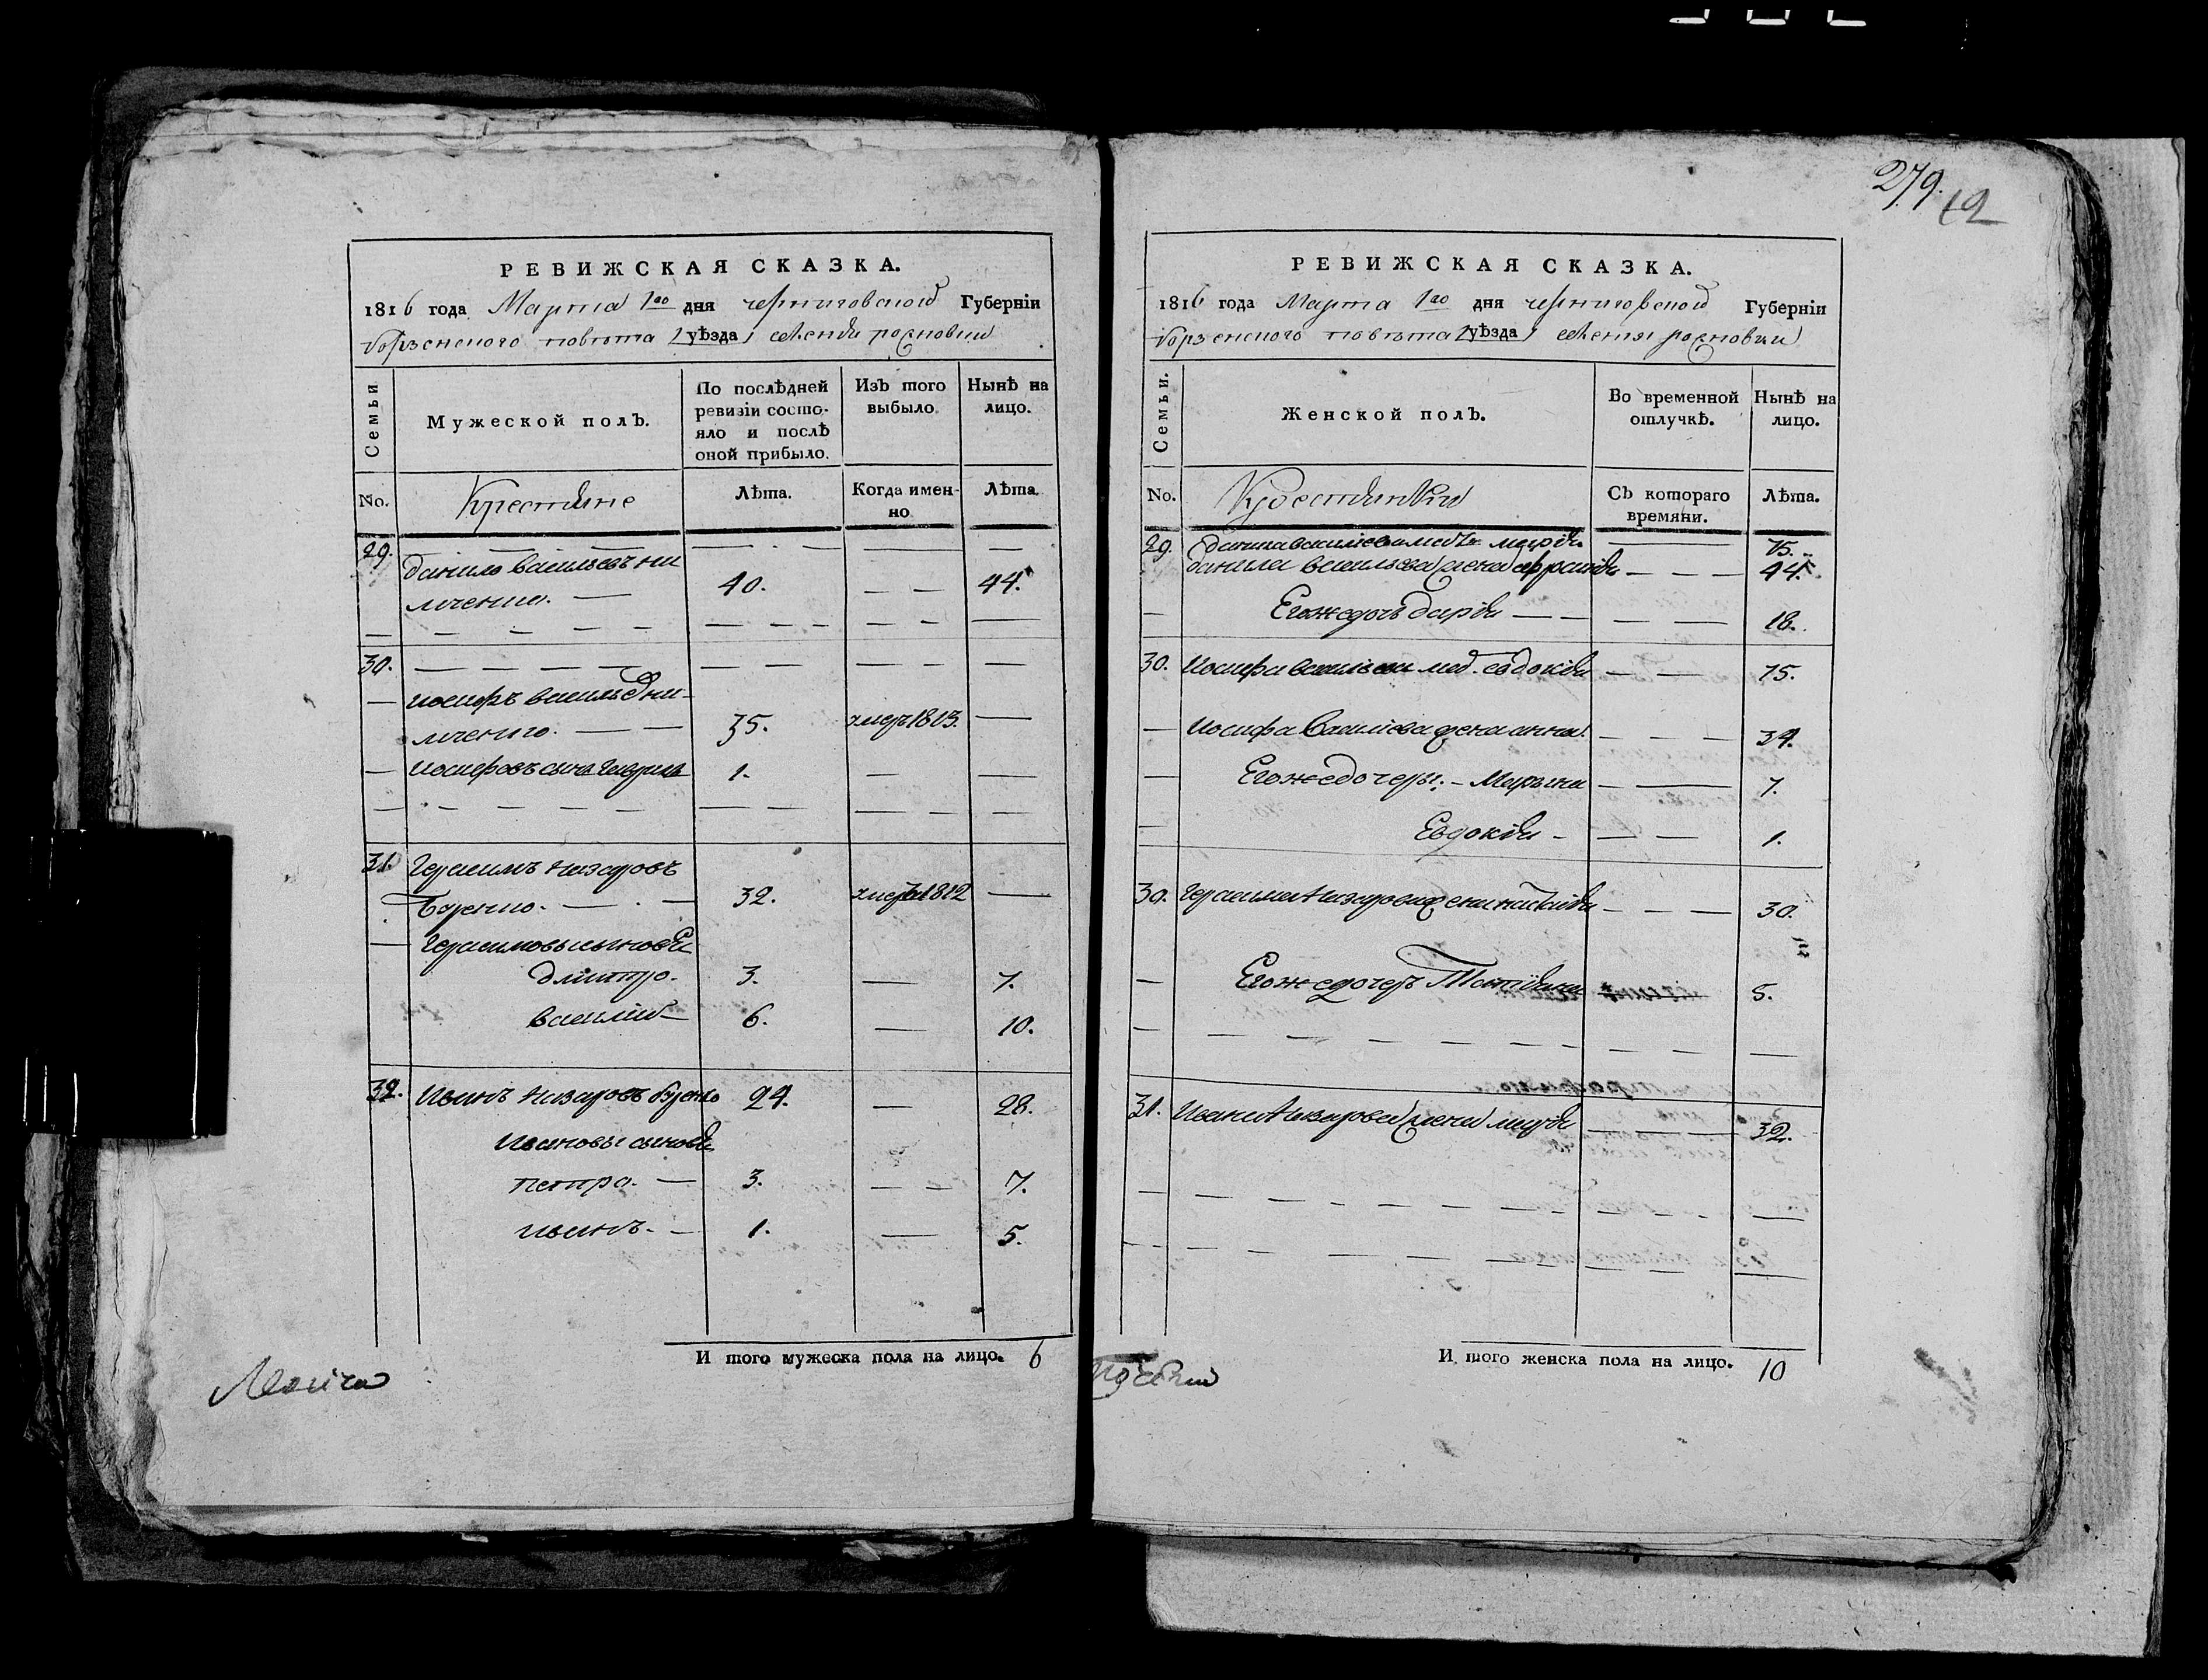 279. 12
РЕВИЖСКАЯ СКАЗКА.
1816 года Марта 1го дня черниговской Губерніи
борзенского повѣта (уѣзда) селения
Семьи
Мужеской полъ.
По послѣдней ревизіи состо-
яло и послѣ
оной прибыло.
Изъ того выбыло.
Нынѣ на лицо.
No.
Крестяне
Лѣта.
Когда имен-
но
Лѣта.
29.
данило васильевъ ни
лченко. 40. 44.
30.
иосифъ василь
35. умеръ 1813.
иосифовъ сынъ гаврила 1.
31. герасимъ назаровъ
буренко. 32. умеръ 1812
герасимовы сыновя
дмитро. 3. 7.
василий 6. 10.
32. иванъ назаровъ буренко 24. 28.
ивановы сыновя
петро. 3. 7.
иванъ. 1. 5.
И того мужеска пола на лицо. 6
РЕВИЖСКАЯ СКАЗКА.
1816 года Марта 1го дня черниговской Губерніи
борзенского повѣта (уѣзда) селения
Семьи.
Женской полъ.
Во временной отлучкѣ.
Нынѣ на лицо.
No.
Крестянки
Съ котораго времяни.
Лѣта.
29. данила василиева мать 75.
данила васильева жена 44.
Егоже дочь дарія 18.
30. иосифа васильева мат. евдокия 75.
иосифа василиева жена анна 34.
Егоже дочери: Марина 7.
Евдокія 1.
30. герасима назарова жена 30.
Егоже дочеръ Татіяна 5.
31. ивана назарова жена 32.
И того женска пола на лицо. 10